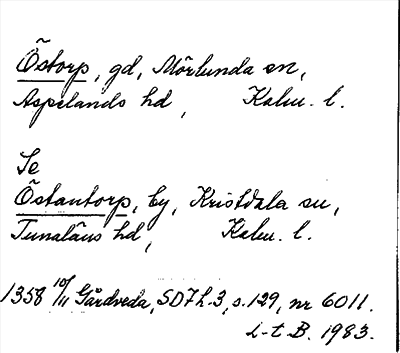 Östorp, gd, Mörlunda sn,
Aspelands hd, Kalm. l.
Se
Östantorp, by, Kristdala sn,
Tunaläns hd, Kalm. l.
1358 10/11 Gårdveda, SD7 h.3, s.129, nr 6011.
L-t B. 1983.